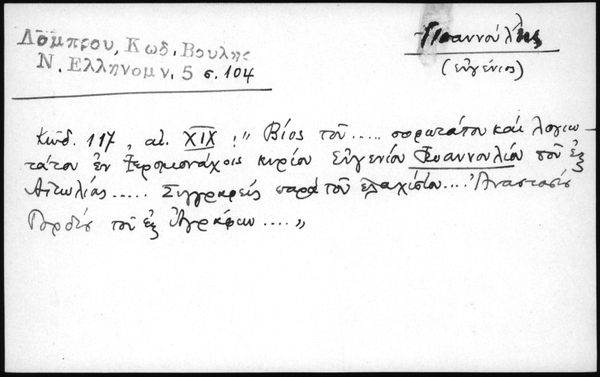 Λάμπρου, Κωδ. Βουλης
Ν. Ελληνομν. 5 σ. 104
Ἰωαννούλης
(εὐγένιος)
Κωδ. 117, αἰ. XIX : " Βίος τοῦ ..... σοφωτάτου καὶ λογιω
τάτου ἐν Ἱερομονάχοις κυρίου Εὐγενίου Ἰωαννουλίου τοῦ ἐξ
Αἰτωλίας ..... Συγγραφεὶς παρὰ τοῦ ἐλαχίστου .... Ἀναστασίου
Γορδίου τοῦ ἐξ Ἀγράφων .... "